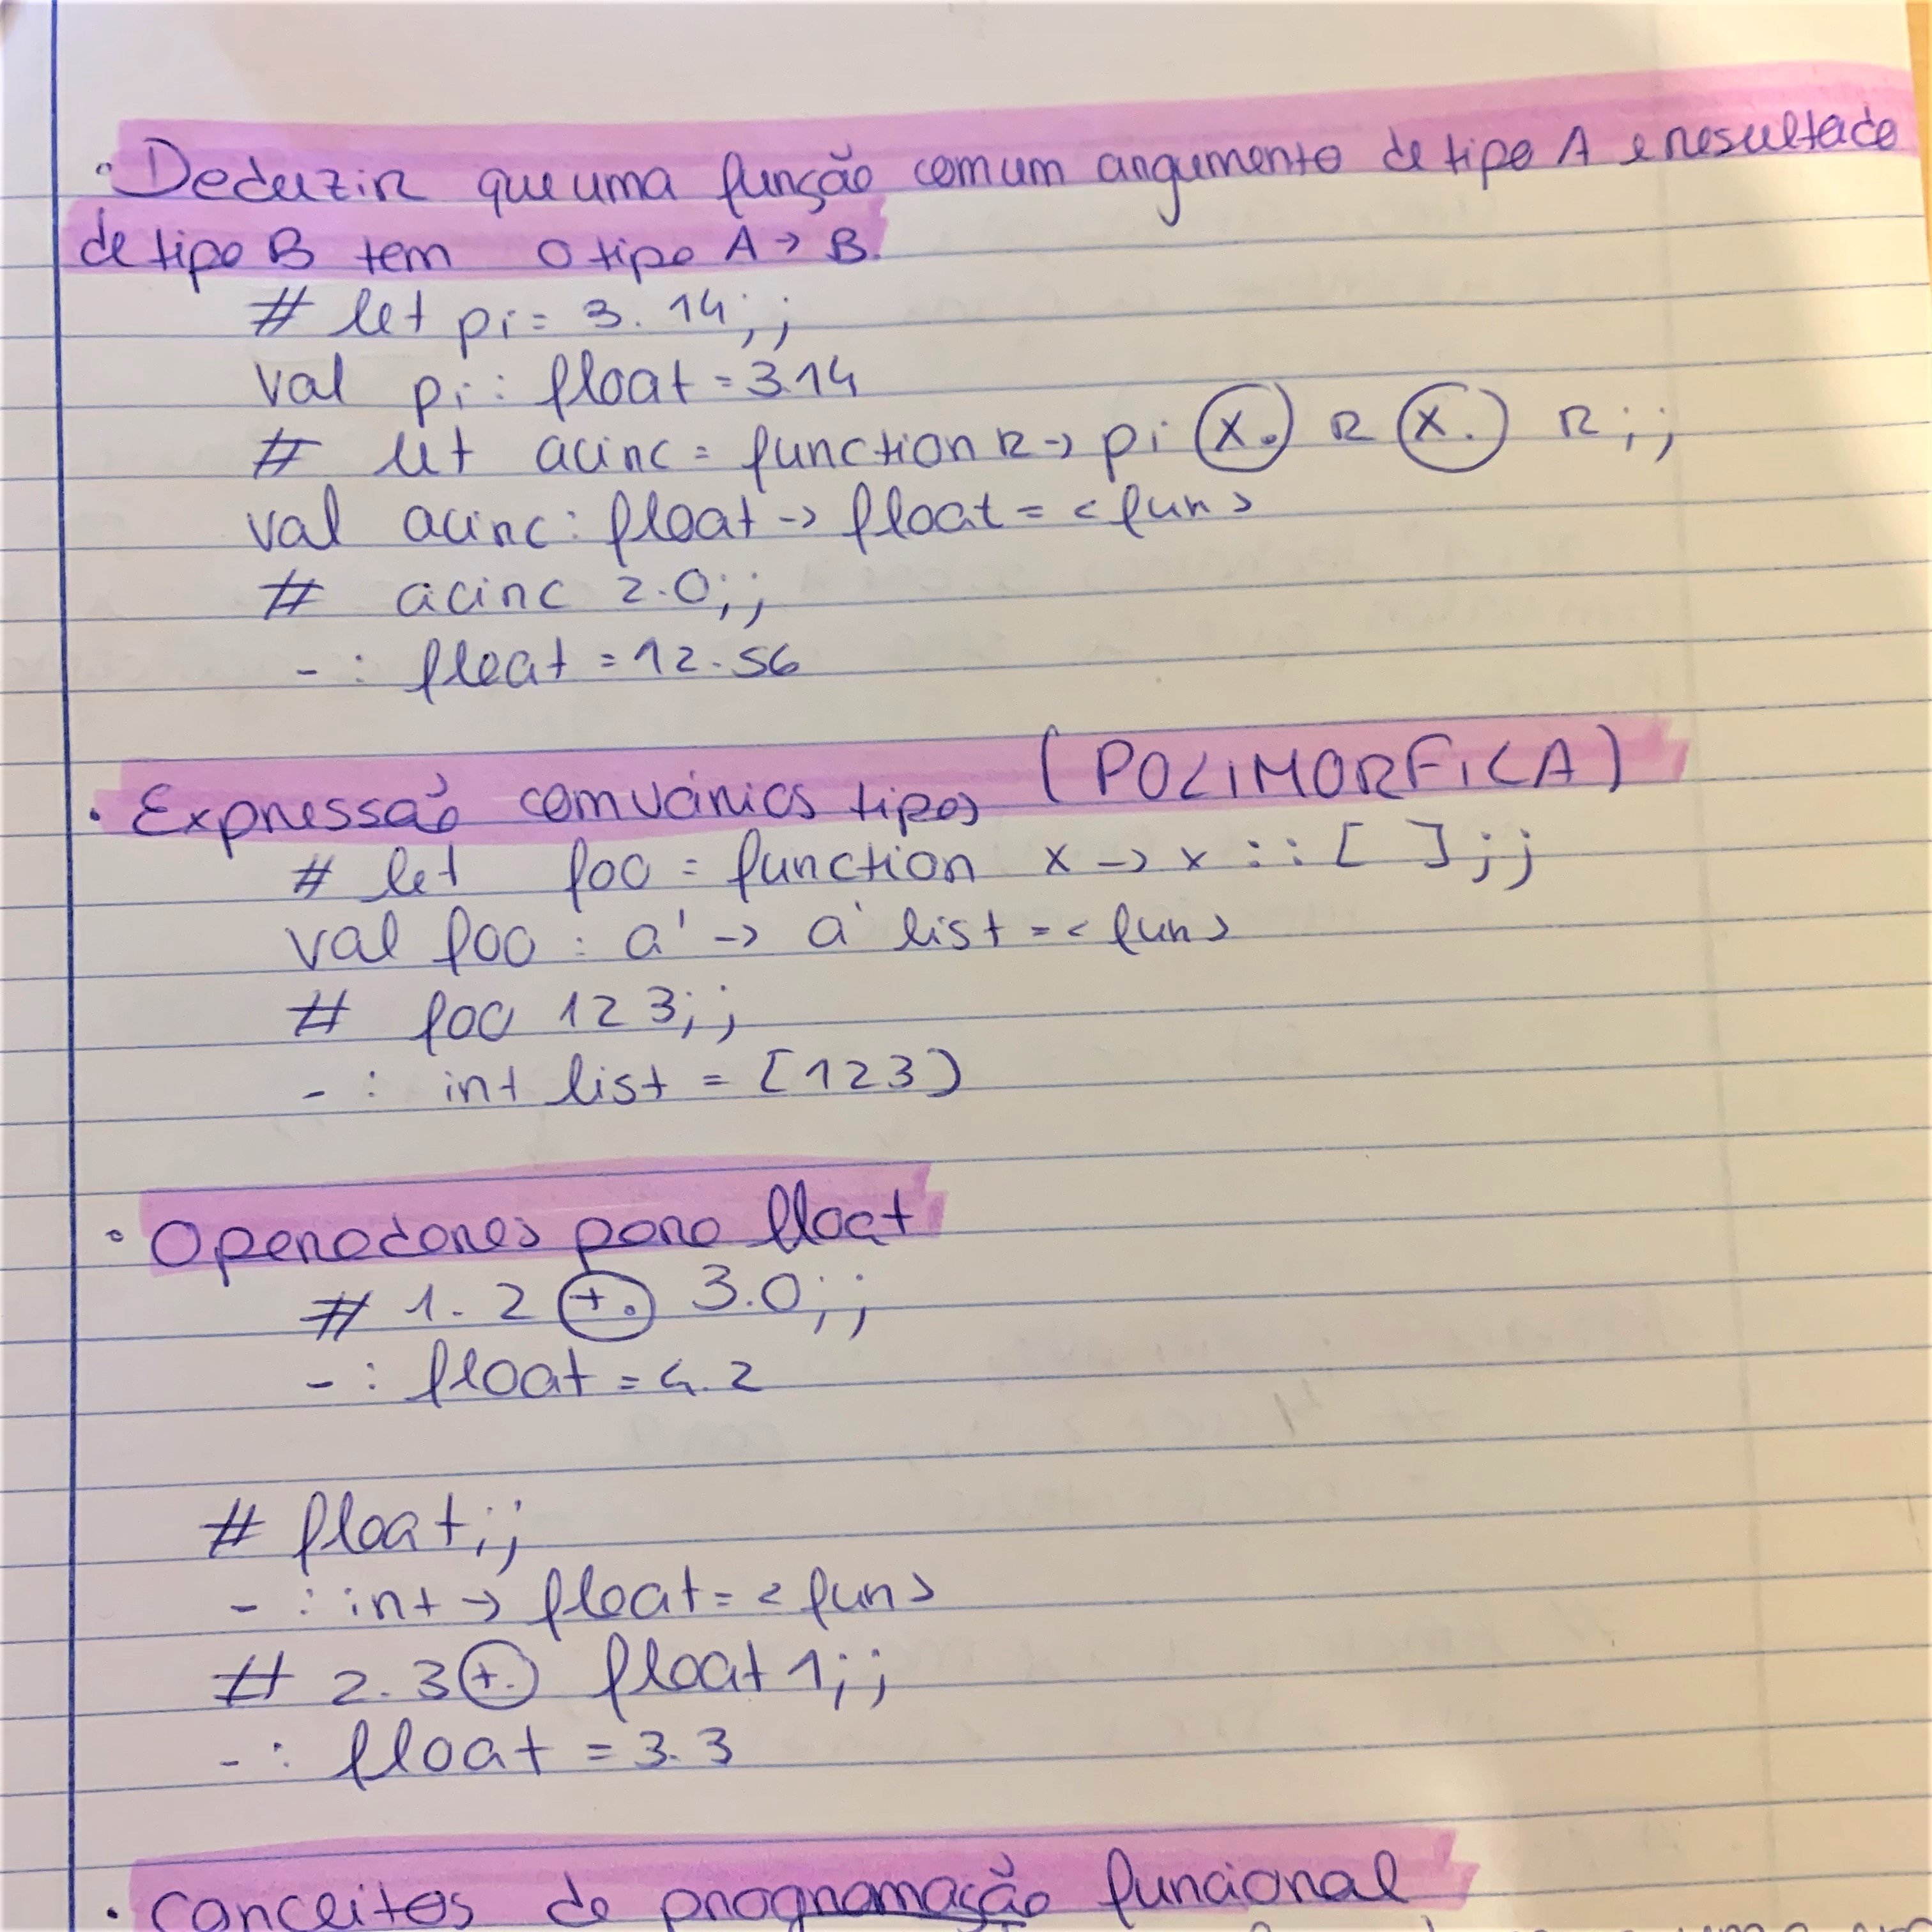 • Deduzir que uma função com um argumento de tipo A e resultado
de tipo B tem o tipo A → B.
# let pi = 3.14;;
val pi : float = 3.14
# let acirc = function r -> pi x. r x. r;;
val acirc : float -> float = <fun>
# acirc 2.0;;
- : float = 12.56
• Expressão com vários tipos (POLIMORFICA)
# let foo = function x -> x :: [ ];;
val foo : a' -> a' list = <fun>
# foo 123;;
- : int list = [123]
• Operadores para float
# 1.2 +. 3.0;;
- : float = 4.2
# float;;
- : int -> float = <fun>
# 2.3 +. float 1;;
- : float = 3.3
• Conceitos de programação funcional